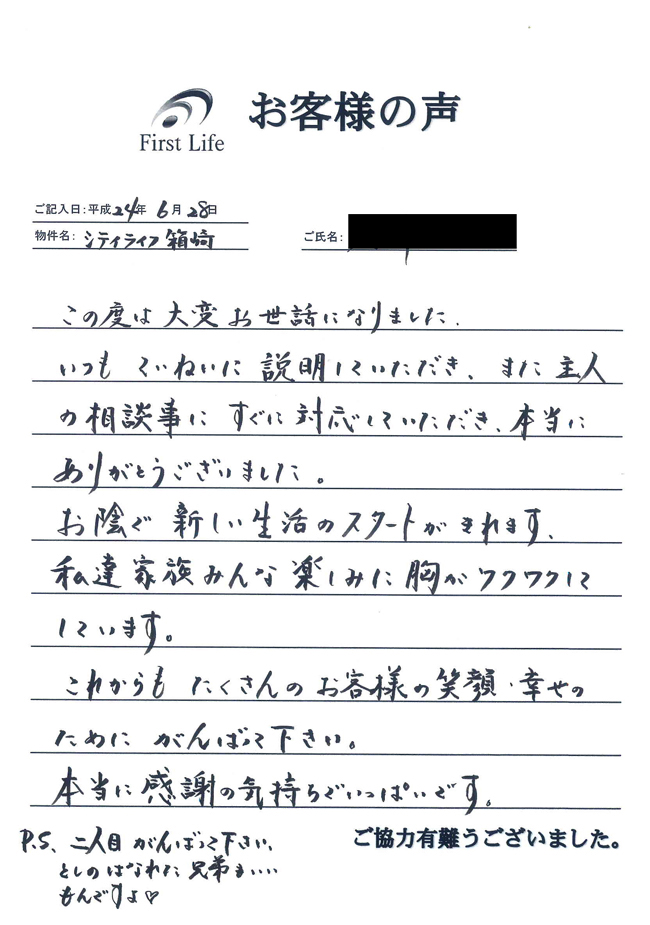 First Life
お客様の声
ご記入日:平成24年 6月 28日
物件名: シティライフ 箱崎
ご氏名:
この度は 大変 お世話になりました.
いつも ていねいに 説明していただき、また 主人
の 相談事に すぐに 対応していただき、本当に
ありがとうございました。
お陰で 新しい生活のスタートが きれます、
私達 家族 みんな 楽しみに 胸が ワクワクして
しています。
これからも たくさんの お客様の 笑顔・幸せの
ために がんばって下さい。
本当に 感謝の気持ちでいっぱいです。
P.S、二人目 がんばって下さい、
としの はなれた 兄弟も‥‥
もんですよ♡
ご協力有難うございました。